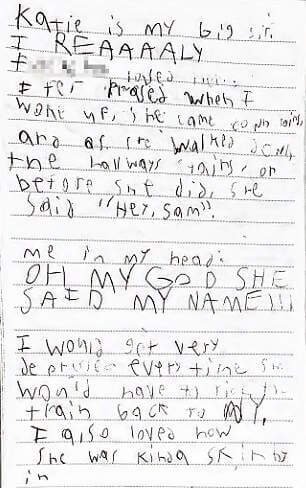 Katie is my big sis.
I REAAAALY
I loved
After when I
woke up, she came
and as she walked down
the hallways stairs, or
before she did, she
said "Hey, Sam".
me in my head:
OH MY GOD SHE
SAID MY NAME!!!
I would get very
every time she
would have to
train back to NY.
I also loved how
she was kinda
in